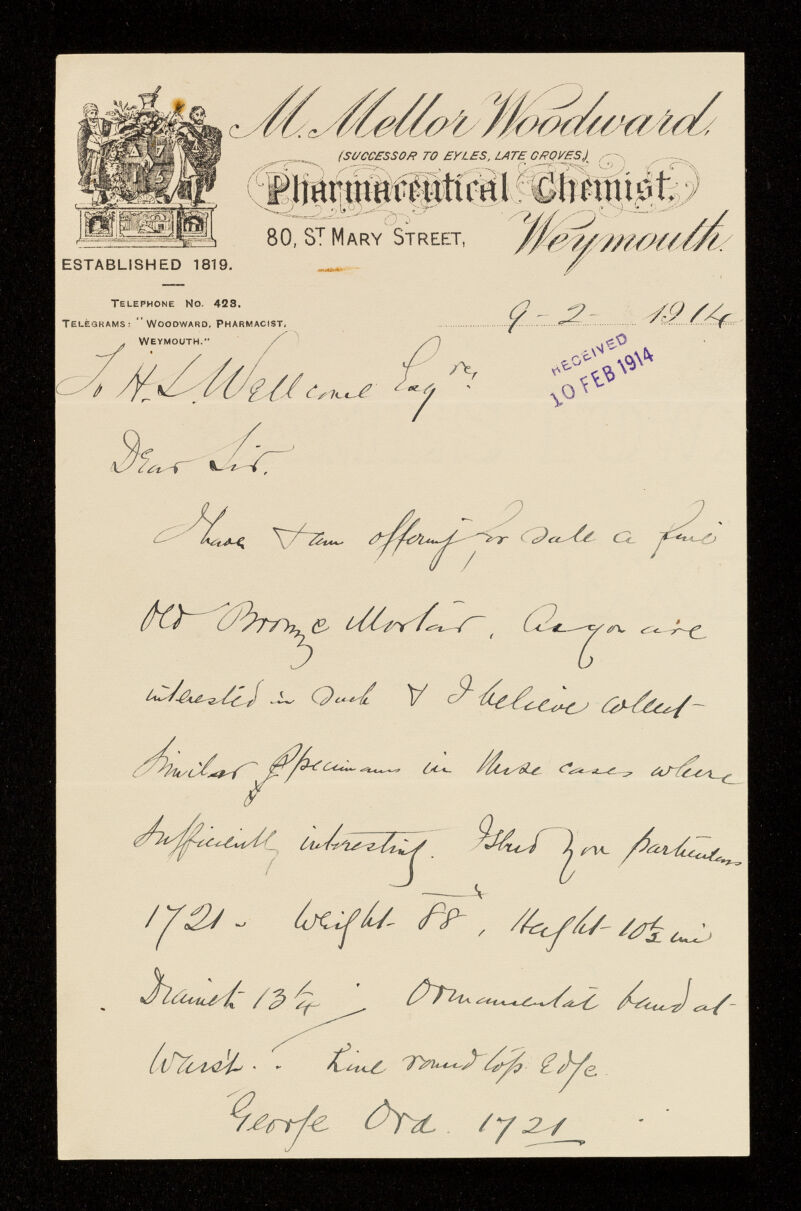 M. Mellor Woodward.
(SUCCESSOR TO EYLES, LATE GROVES.)
Pharmaceutical Chemist.
80, ST MARY STREET, Weymouth.
ESTABLISHED 1819.
TELEPHONE NO. 423.
TELEGRAMS: "WOODWARD, PHARMACIST,
WEYMOUTH."
9-2-1914
RECEIVED
10 FEB 1914
To H. S. Wellcome Esqre,
Dear Sir.
I have & am offering for sale a fine
Old Bronze Mortar, As you are
interested in such & I believe collect
Similar Specimans in those cases where
Sufficiently interesting. I send you particulars
1721 - Weight 88, Height 10½ ins
Diameter 13¼ Ornamental band at
Waist. Line round top Edge
George Ord. 1721